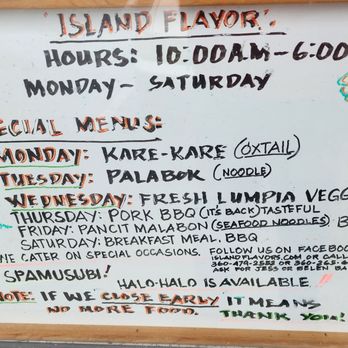 "ISLAND FLAVOR".
HOURS: 10:00AM-6:00
MONDAY- SATURDAY
ECIAL MENUS:
MONDAY: KARE-KARE (OXTAIL)
TUESDAY: PALABOK (NOODLE)
WEDNESDAY: FRESH LUMPIA VEGG
THURSDAY: PORK BBQ (IT'S BACK) TASTEFUL
FRIDAY: PANCIT MALABON (SEAFOOD NOODLES) B
SATURDAY: BREAKFAST MEAL, BBQ
WE CATER ON SPECIAL OCCASIONS. FOLLOW US ON FACEBOO
ISLANDFLAVORS.COM OR CALL
360-479-2552 OR 360-265-
ASK FOR JESS OR BELEN BA
SPAMUSUBI! HALO-HALO IS AVAILABLE.
NOTE: IF WE CLOSE EARLY IT MEANS
NO MORE FOOD. THANK YOU!